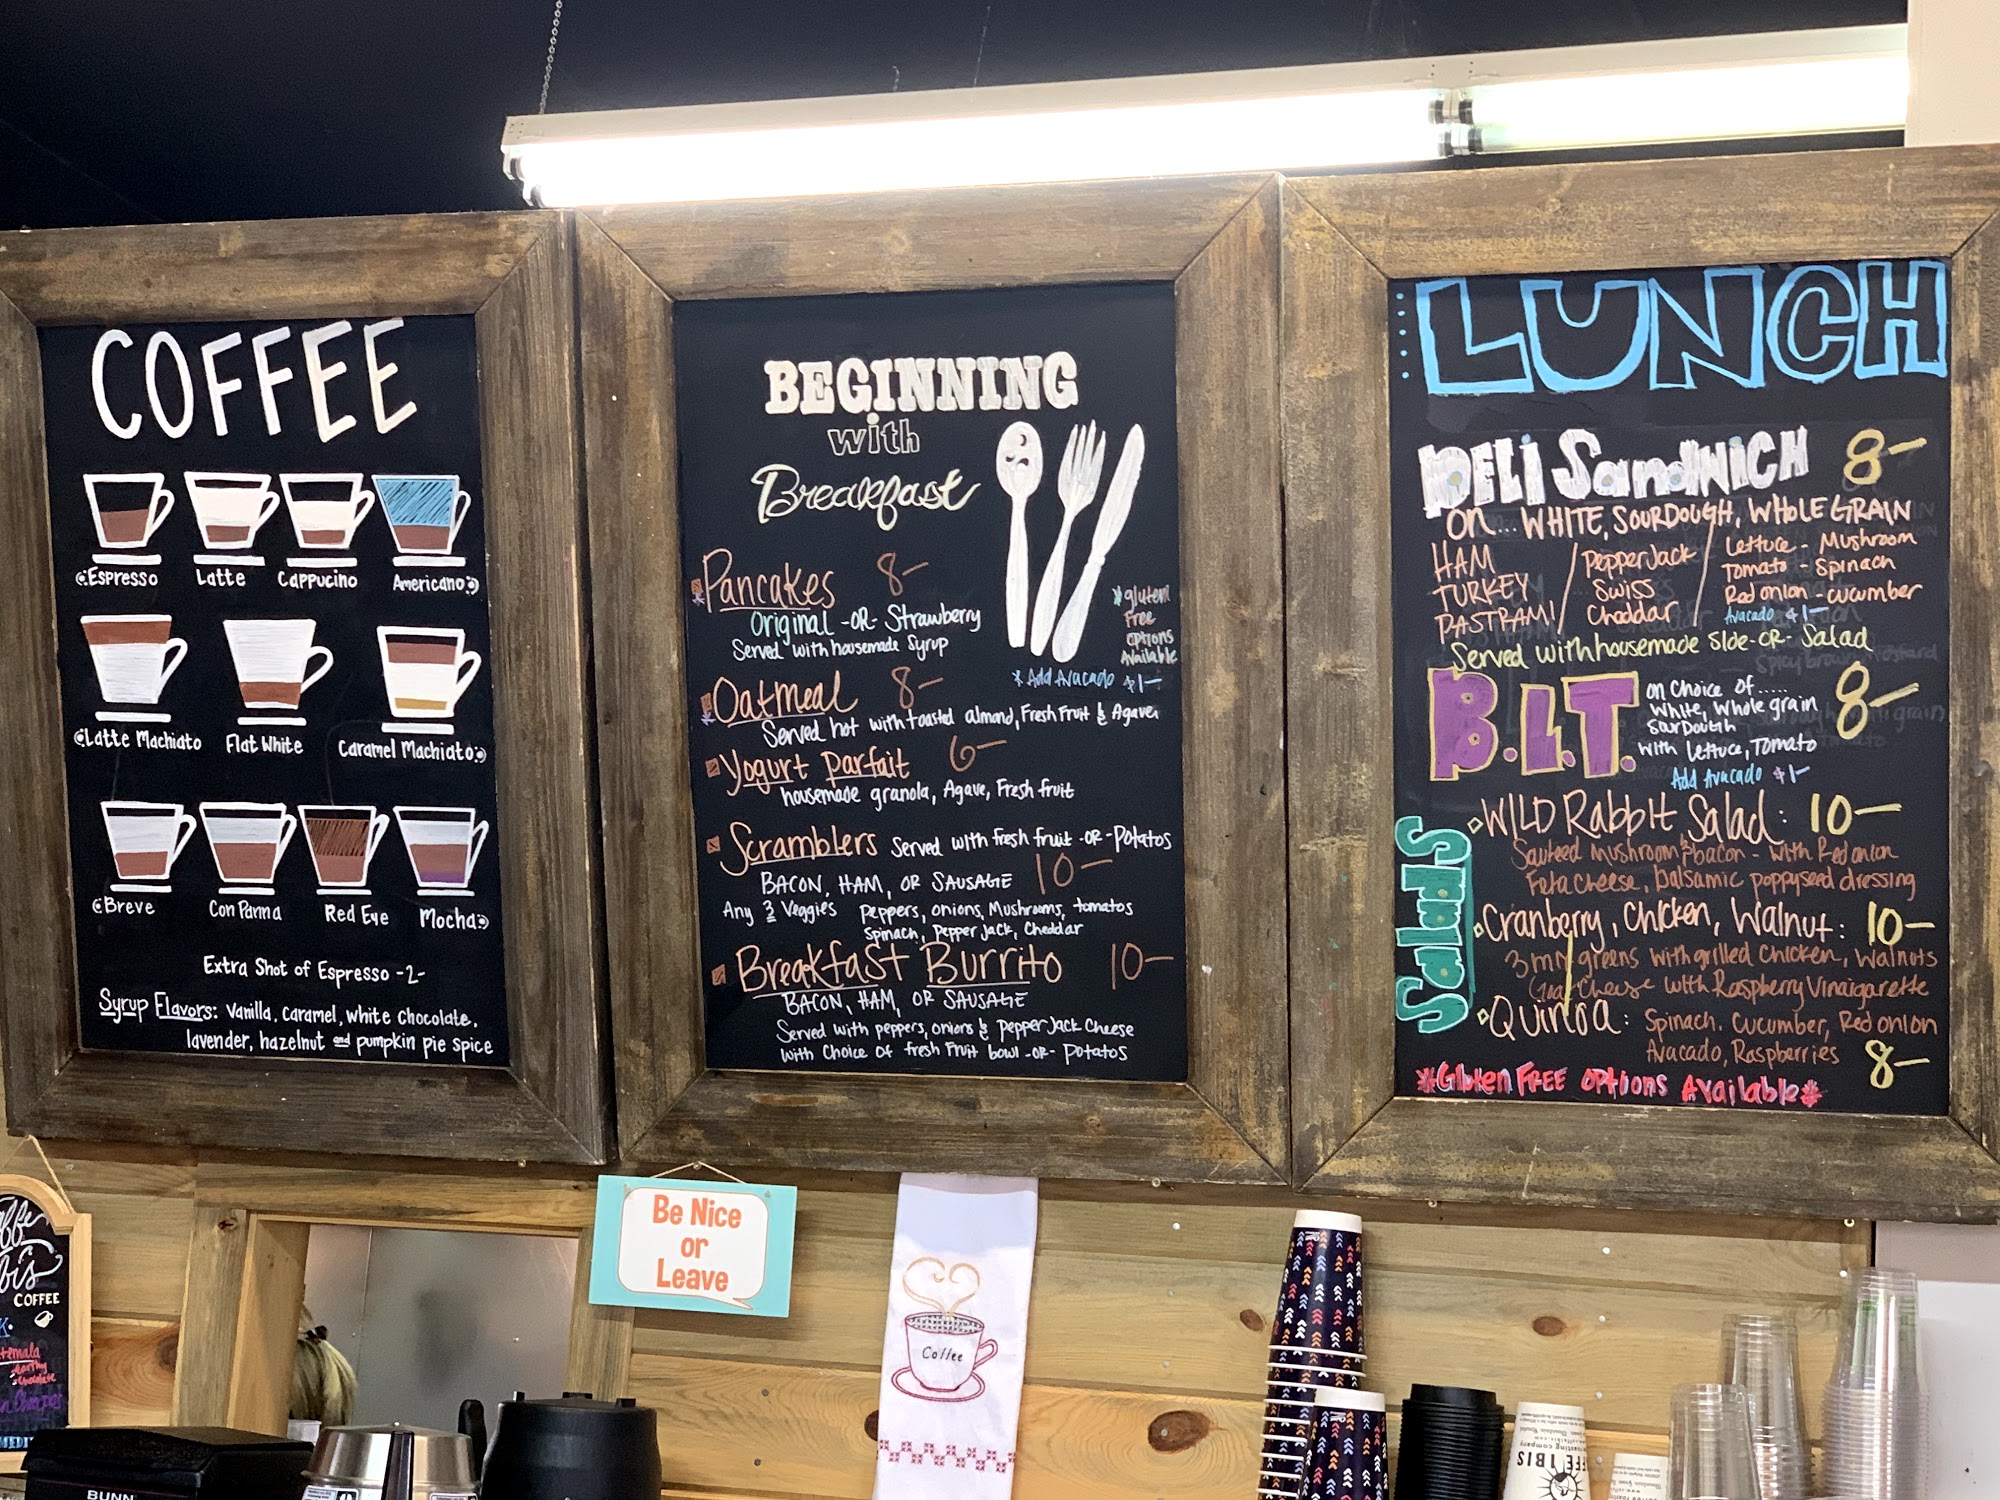 COFFEE
Espresso Latte Cappucino Americano
Latte Machiato Flat White Caramel Machiato
Breve Con Panna Red Eye Mocha
Extra Shot of Espresso -2-
Syrup Flavors: Vanilla, Caramel, White Chocolate,
lavender, hazelnut and pumpkin pie spice
BEGINNING
with
Breakfast
Pancakes 8-
Original -OR- Strawberry
Served with housemade Syrup
*gluten
Free
options
Available
* Add Avacado $1-
Oatmeal 8-
Served hot with toasted almond, Fresh Fruit & Agave
Yogurt Parfait 6-
housemade granola, Agave, Fresh fruit
Scramblers Served with fresh fruit -OR- Potatos
BACON, HAM, OR SAUSAGE 10-
Any 3 Veggies Peppers, onions, Mushrooms, tomatos
Spinach, Pepper Jack, Cheddar
Breakfast Burrito 10-
BACON, HAM, OR SAUSAGE
Served with peppers, onions & pepper Jack Cheese
With Choice of fresh Fruit bowl -OR- Potatos
LUNCH
DELi SandWICH 8-
on... WHITE, SOURDOUGH, WHOLE GRAIN
HAM / PepperJack / Lettuce - Mushroom
TURKEY Swiss Tomato - Spinach
PASTRAMI Cheddar Red onion - cucumber
Avacado $1-
Served with housemade Side -OR- Salad
B.L.T. 8-
on Choice of.....
White, Whole grain
Sourdough
With Lettuce, Tomato
Add Avacado $1-
Salads
WILD Rabbit Salad: 10-
Sauteed Mushroom & bacon - with Red onion
Feta Cheese, balsamic poppyseed dressing
Cranberry, Chicken, Walnut: 10-
greens with grilled Chicken, Walnuts
Goat Cheese with Raspberry Vinaigarette
Quinoa: Spinach, Cucumber, Red onion
Avacado, Raspberries 8-
*Gluten FREE options Available*
Be Nice
or
Leave
Coffee
COFFEE
BUNN
IBIS